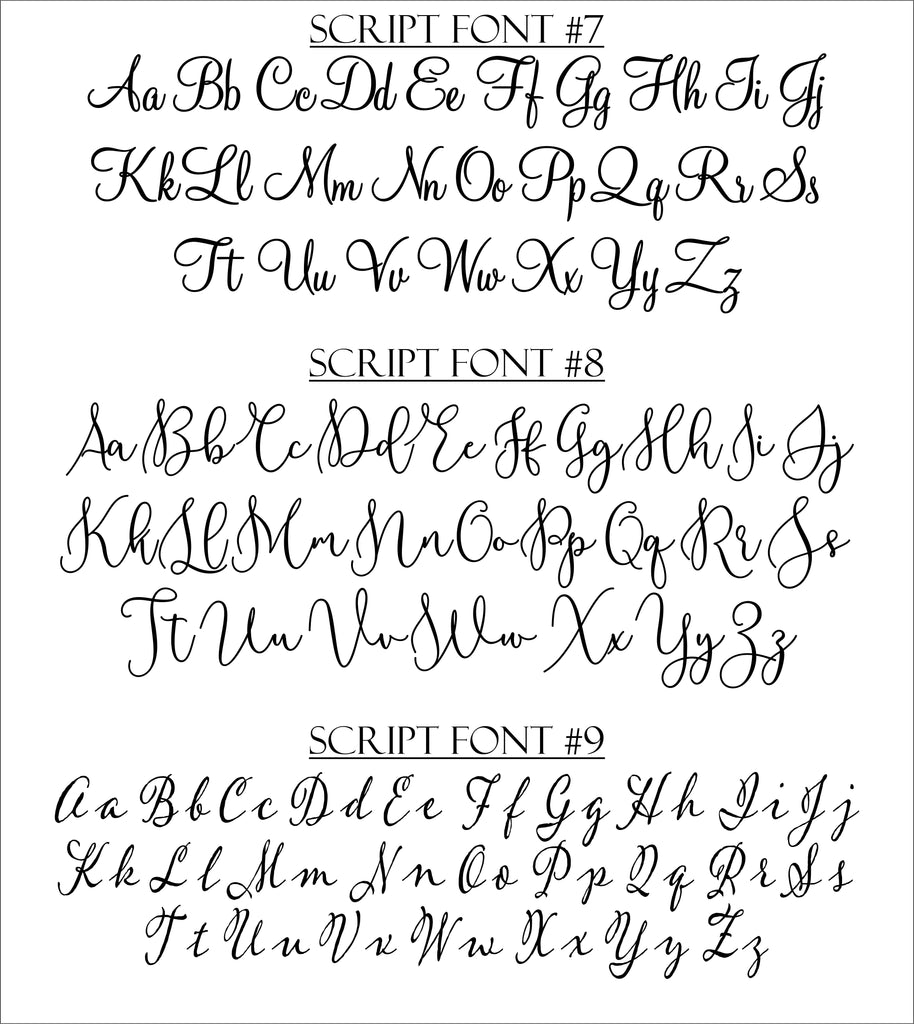 SCRIPT FONT #7
Aa Bb Cc Dd Ee Ff Gg Hh Ii Jj
Kk Ll Mm Nn Oo Pp Qq Rr Ss
Tt Uu Vv Ww Xx Yy Zz
SCRIPT FONT #8
Aa Bb Cc Dd Ee Ff Gg Hh Ii Jj
Kk Ll Mm Nn Oo Pp Qq Rr Ss
Tt Uu Vv Ww Xx Yy Zz
SCRIPT FONT #9
A a B b C c D d E e F f G g H h I i J j
K k L l M m N n O o P p Q q R r S s
T t U u V v W w X x Y y Z z